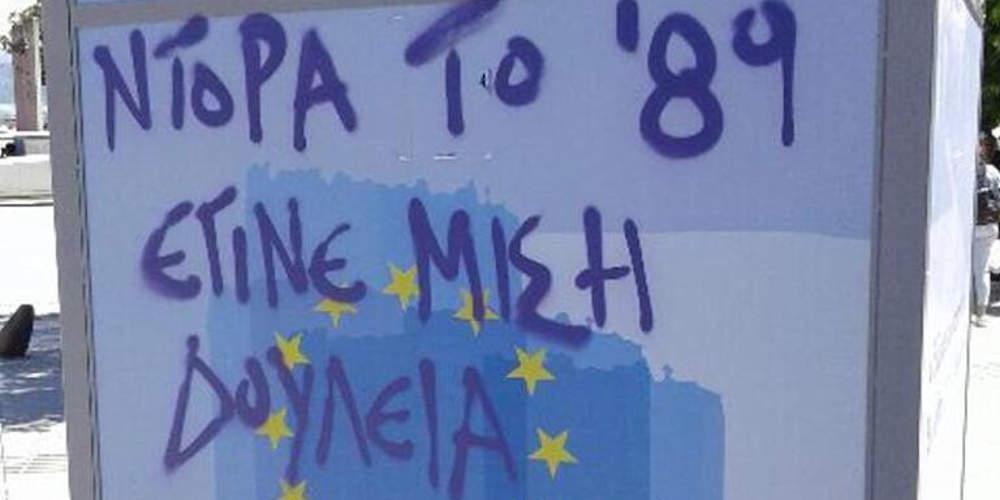 ΝΤΟΡΑ ΤΟ '89
ΕΓΙΝΕ ΜΙΣΗ
ΔΟΥΛΕΙΑ